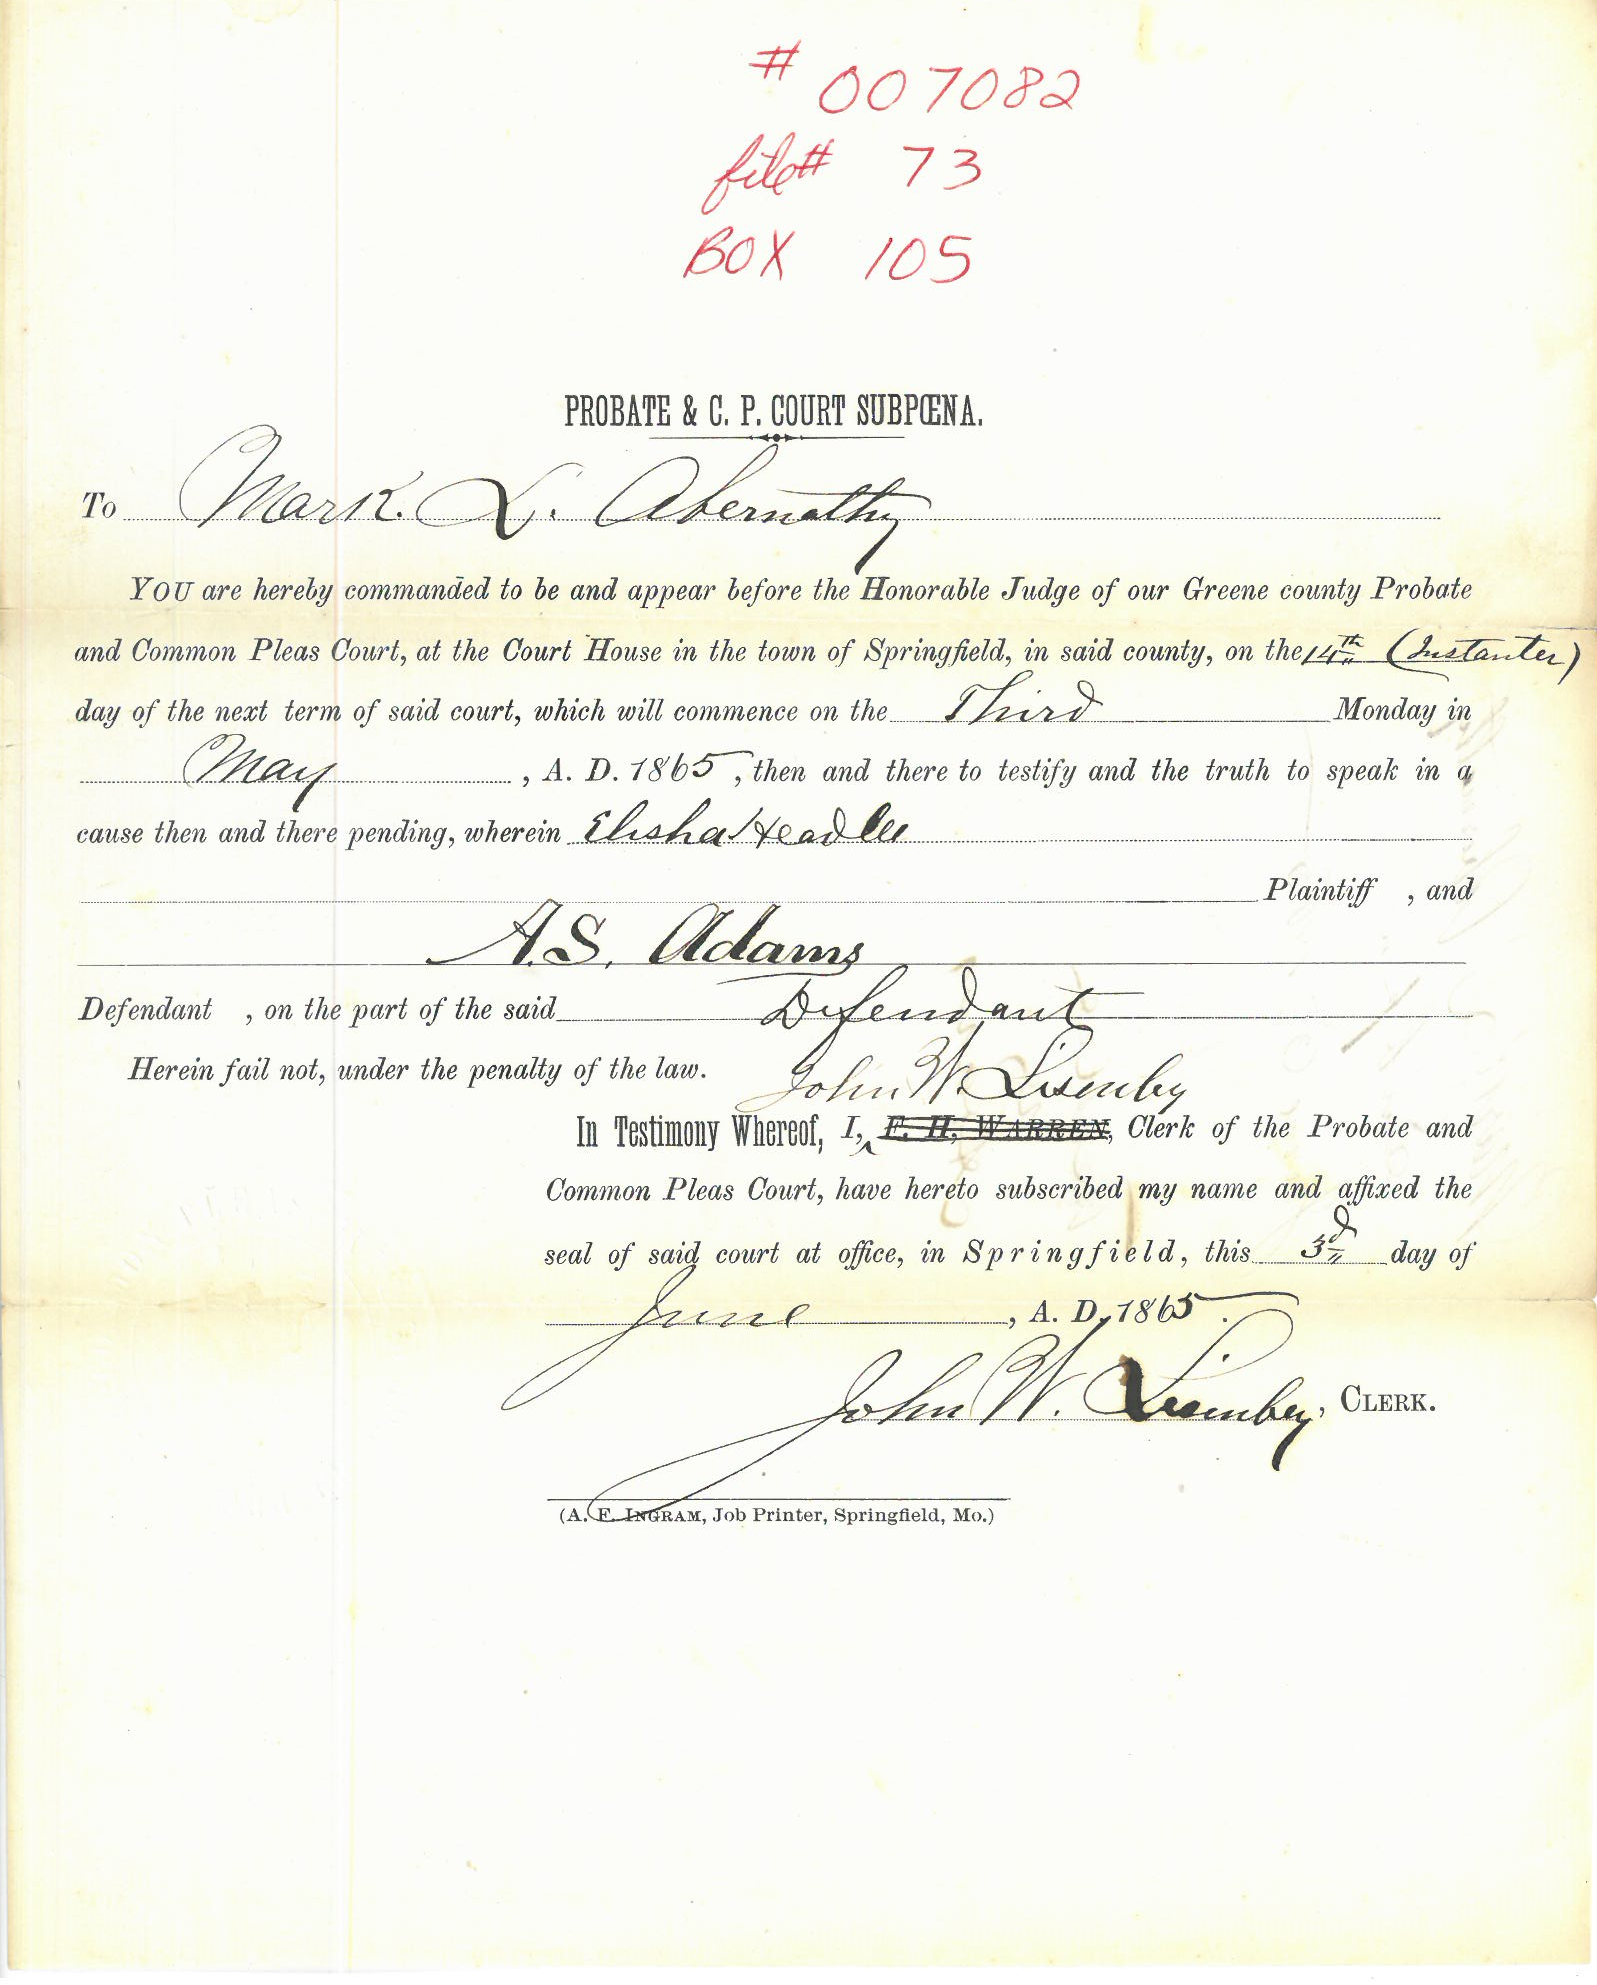 # 007082
file# 73
BOX 105
PROBATE & C. P. COURT SUBPŒNA.
To Mark. L. Abernathy
YOU are hereby commanded to be and appear before the Honorable Judge of our Greene county Probate
and Common Pleas Court, at the Court House in the town of Springfield, in said county, on the 14th (Instanter)
day of the next term of said court, which will commence on the Third Monday in
May, A. D. 1865, then and there to testify and the truth to speak in a
cause then and there pending, wherein Elisha Headlee
Plaintiff , and
A.S. Adams
Defendant , on the part of the said Defendant
Herein fail not, under the penalty of the law.
John W. Lisenby
In Testimony Whereof, I, F. H. WARREN, Clerk of the Probate and
Common Pleas Court, have hereto subscribed my name and affixed the
seal of said court at office, in Springfield, this 3d day of
June, A. D. 1865.
John W. Lisenby, CLERK.
(A. F. INGRAM, Job Printer, Springfield, Mo.)